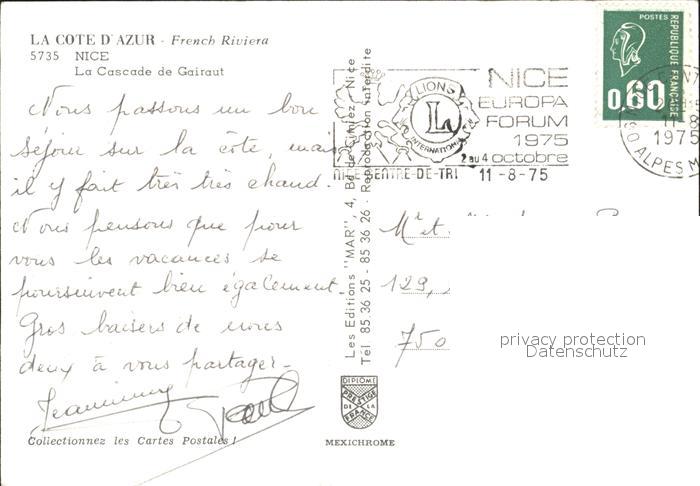 LA COTE D'AZUR - French Riviera
5735 NICE
La Cascade de Gairaut
Nous passons un bon
séjour sur la côte, mais
il y fait très très chaud.
Nous pensons que pour
vous les vacances se
poursuivent bien également.
Gros baisers de nous
deux à vous partager.
Jeannine
Paul
Collectionnez les Cartes Postales !
Les Editions "MAR" - 4, Bd de Cimiez - Nice
Tél 85 36 25 - 85 36 26 - Reproduction interdite
LIONS
L
INTERNATIONAL
NICE
EUROPA
FORUM
1975
2 au 4 octobre
NICE-CENTRE-DE-TRI 11-8-75
POSTES
REPUBLIQUE FRANÇAISE
0,60
11-8
1975
ALPES M
M et
129,
750
privacy protection
Datenschutz
DIPLOME
PRESTIGE
DE LA
FRANCE
MEXICHROME